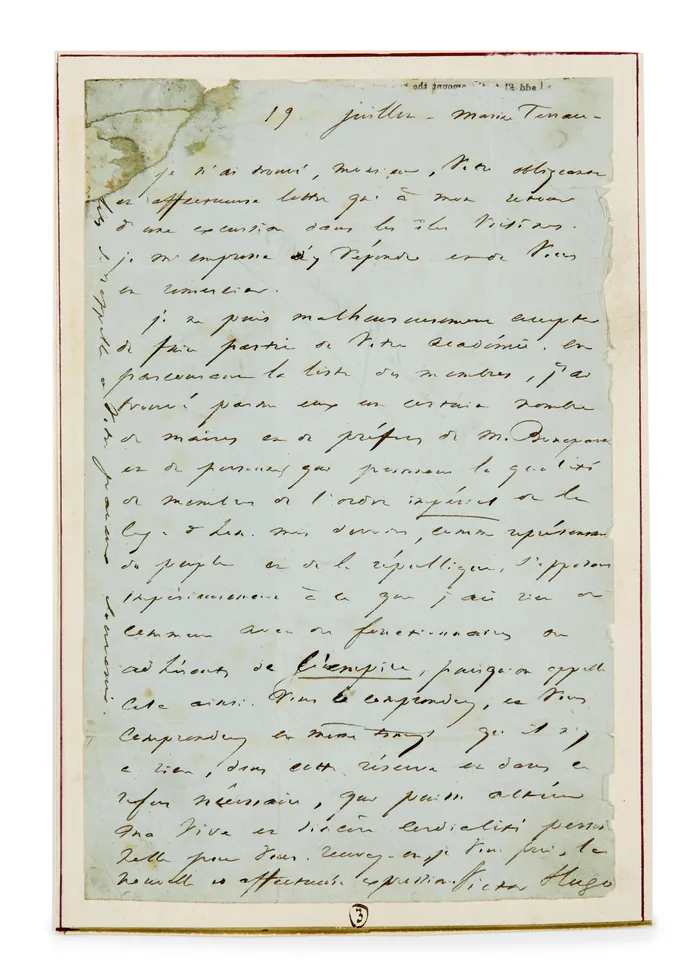 19 juillet - Marine Terrace -
je n'ai trouvé, monsieur, Votre obligeante
et affectueuse lettre qu'à mon retour
d'une excursion dans les îles Voisines.
je m'empresse d'y répondre et de Vous
en remercier.
je ne puis malheureusement accepter
de faire partie de Votre académie. en
parcourant la liste des membres, j'ai
trouvé parmi eux un certain nombre
de maires et de préfets de M. Bonaparte
et de personnes qui prennent la qualité
de membres de l'ordre impérial de la
leg. d'hon. mes devoirs, comme représentant
du peuple et de la république, s'opposent
impérieusement à ce que j'aie rien de
commun avec des fonctionnaires ou
adhérents de l'empire, puisqu'on appelle
cela ainsi. Vous le comprendrez, et Vous
comprendrez en même temps qu'il n'y
a rien, dans cette réserve et dans ce
refus nécessaire, qui puisse altérer
ma Vive et sincère cordialité person-
nelle pour Vous. recevez-en, je Vous prie, la
nouvelle et affectueuse expression. Victor Hugo
rappelle à Votre gracieux souvenir.
3